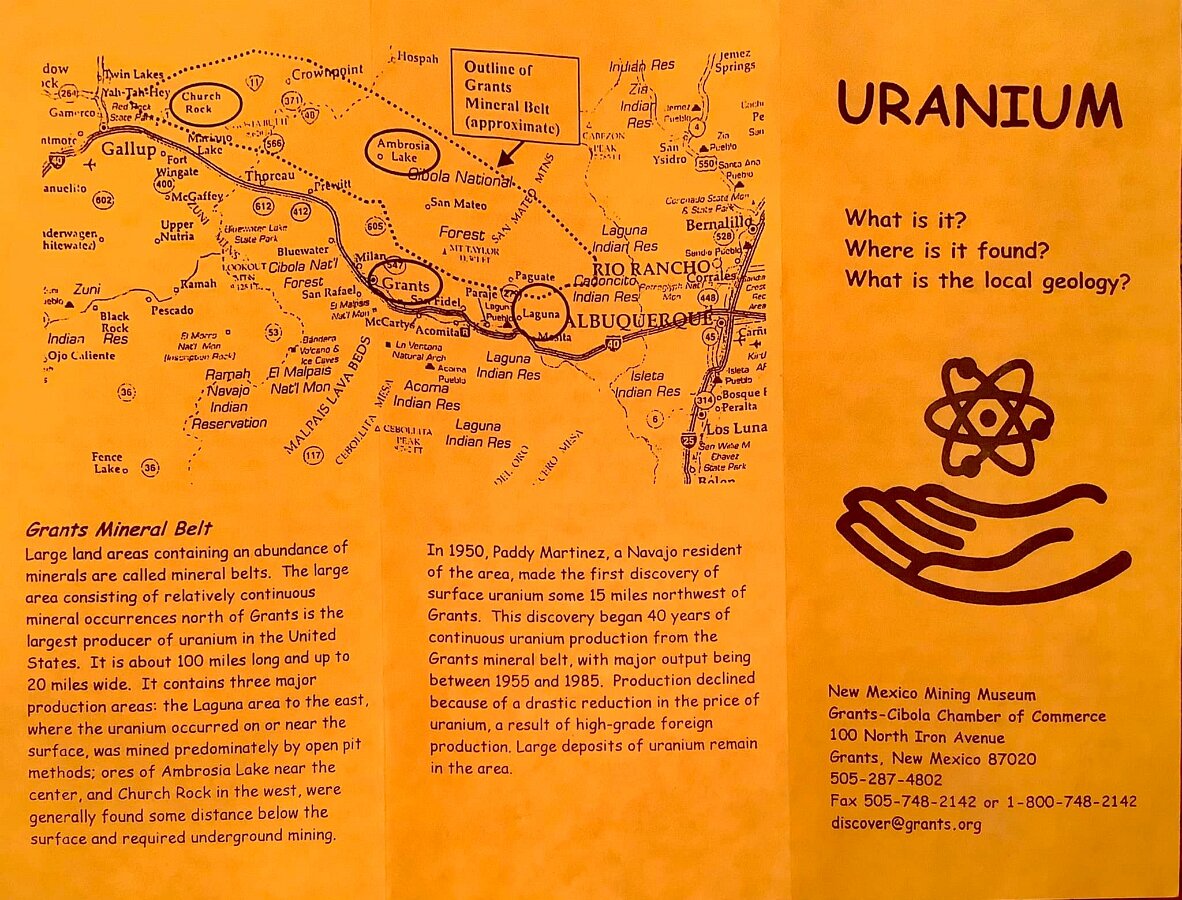 dow
ck
Twin Lakes
264
Yah-Tah-Hey
Red Rock
State Park
Gamerco
Church
Rock
11
Crownpoint
371
Hospah
Outline of
Grants
Mineral Belt
(approximate)
Indian Res
Zia
Indian
Res
Jemez
Springs
Jemez
Pueblo
4
Zia
Pueblo
San
Ysidro
550
Santa Ana
Pueblo
CABEZON
PEAK
Coronado State Mon
& State Park
Bernalillo
528
Sandia Pueblo
ntmore
40
Gallup
Mariano
Lake
566
Fort
Wingate
400
Thoreau
Prewitt
Ambrosia
Lake
Cibola National
San Mateo
Forest
SAN MATEO MTNS
MT TAYLOR
605
anuelito
602
McGaffey
612
412
ZUNI
MTS
Upper
Nutria
Bluewater Lake
State Park
Bluewater
Milan
547
Grants
LOOKOUT
MTN
Cibola Nat'l
Forest
San Rafael
El Malpais
Nat'l Mon
San Fidel
McCartys
Acomita
Paraje
279
Paguate
Laguna
Pueblo
Laguna
Mesita
Laguna
Indian Res
Canoncito
Indian Res
RIO RANCHO
Corrales
Petroglyph Nat'l
Mon
448
ALBUQUERQUE
45
40
Zuni
Ramah
Pescado
Black
Rock
Indian
Res
Ojo Caliente
El Morro
Nat'l Mon
(Inscription Rock)
53
Bandera
Volcano &
Ice Caves
El Malpais
Nat'l Mon
La Ventana
Natural Arch
Acoma
Pueblo
Acoma
Indian Res
Laguna
Indian Res
Ramah
Navajo
Indian
Reservation
36
MALPAIS LAVA BEDS
CEBOLLITA MESA
CEBOLLITA
PEAK
Laguna
Indian Res
117
Fence
Lake
36
DEL ORO
Isleta
Indian Res
Isleta
Pueblo
314
Peralta
6
Los Luna
25
State Park
Belen
Grants Mineral Belt
Large land areas containing an abundance of
minerals are called mineral belts.  The large
area consisting of relatively continuous
mineral occurrences north of Grants is the
largest producer of uranium in the United
States.  It is about 100 miles long and up to
20 miles wide.  It contains three major
production areas: the Laguna area to the east,
where the uranium occurred on or near the
surface, was mined predominately by open pit
methods; ores of Ambrosia Lake near the
center, and Church Rock in the west, were
generally found some distance below the
surface and required underground mining.
In 1950, Paddy Martinez, a Navajo resident
of the area, made the first discovery of
surface uranium some 15 miles northwest of
Grants.  This discovery began 40 years of
continuous uranium production from the
Grants mineral belt, with major output being
between 1955 and 1985.  Production declined
because of a drastic reduction in the price of
uranium, a result of high-grade foreign
production. Large deposits of uranium remain
in the area.
URANIUM
What is it?
Where is it found?
What is the local geology?
New Mexico Mining Museum
Grants-Cibola Chamber of Commerce
100 North Iron Avenue
Grants, New Mexico 87020
505-287-4802
Fax 505-748-2142 or 1-800-748-2142
discover@grants.org